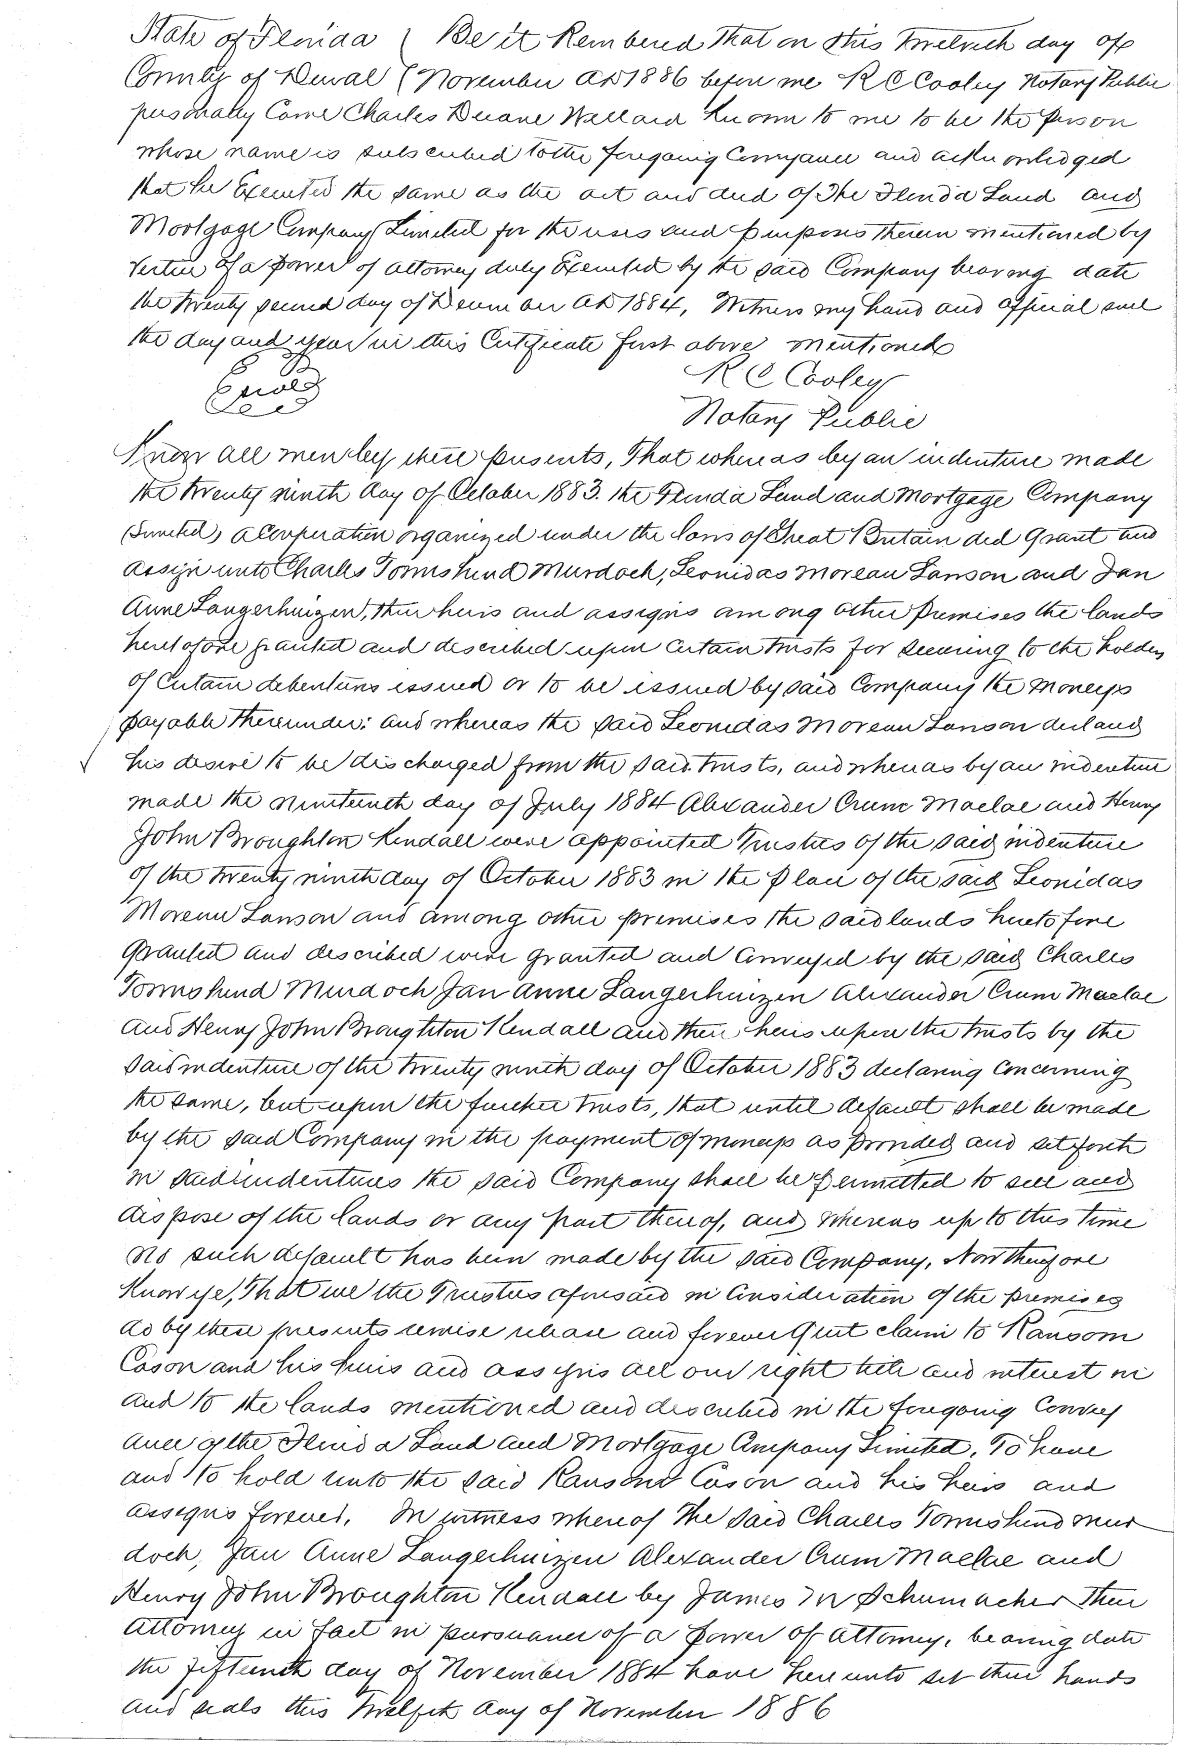 State of Florida ( Be it Rembered That on this Twelveth day of
County of Duval ( November AD 1886 before me R C Cooley Notary Public
personally Came Charles Duane Willard Known to me to be the person
whose name is subscribed to the foregoing Conveyance and acknowledged
that he Executed the same as the act and deed of The Florida Land and
Mortgage Company Limited for the uses and purposes therein mentioned by
vertue of a power of attorney duly Executed by the said Company bearing date
the twenty second day of December AD 1884, Witness my hand and official seal
the day and year in this Certificate first above mentioned
R C Cooley
Notary Public
Know all men by these presents, That whereas by an indenture made
the twenty ninth day of October 1883. the Florida Land and Mortgage Company
(Limited) a Corporation organized under the laws of Great Britain did grant and
assign unto Charles Townshend Murdoch, Leonidas Moreau Lawson and Jan
Anne Langerhuizen, their heirs and assigns among other premises the lands
heretofore granted and described upon certain trusts for securing to the holders
of certain debentures issued or to be issued by said Company the moneys
payable thereunder: and whereas the said Leonidas Moreau Lawson declared
his desire to be discharged from the said trusts, and whereas by an indenture
made the nineteenth day of July 1884 Alexander Crum Maclae and Henry
John Broughton Kendall were appointed Trustees of the said indenture
of the twenty ninth day of October 1883 in the place of the said Leonidas
Moreau Lawson and among other premises the said lands heretofore
granted and described were granted and conveyed by the said Charles
Townshend Murdoch Jan Anne Langerhuizen Alexander Crum Maclae
and Henry John Broughton Kendall and their heirs upon the trusts by the
said indenture of the twenty ninth day of October 1883 declaring concerning
the same, but upon the further trusts, that until default shall be made
by the said Company in the payment of moneys as provided and set forth
in said indentures the said Company shall be permitted to sell and
dispose of the lands or any part thereof, and whereas up to this time
no such default has been made by the said Company, Now therefore
Know ye, That we the Trustees aforesaid in Consideration of the premises
do by these presents remise release and forever Quit claim to Ransom
Cason and his heirs and assigns all our right title and interest in
and to the lands mentioned and described in the foregoing Convey
ance of the Florida Land and Mortgage Company Limited, To have
and to hold unto the said Ransom Cason and his heirs and
assigns forever. In witness whereof The said Charles Townshend Mur
doch, Jan Anne Langerhuizen Alexander Crum Maclae and
Henry John Broughton Kendall by James M Schumacher Their
Attorney in fact in pursuance of a power of attorney, bearing date
the fifteenth day of November 1884 have hereunto set their hands
and seals this Twelfth day of November 1886